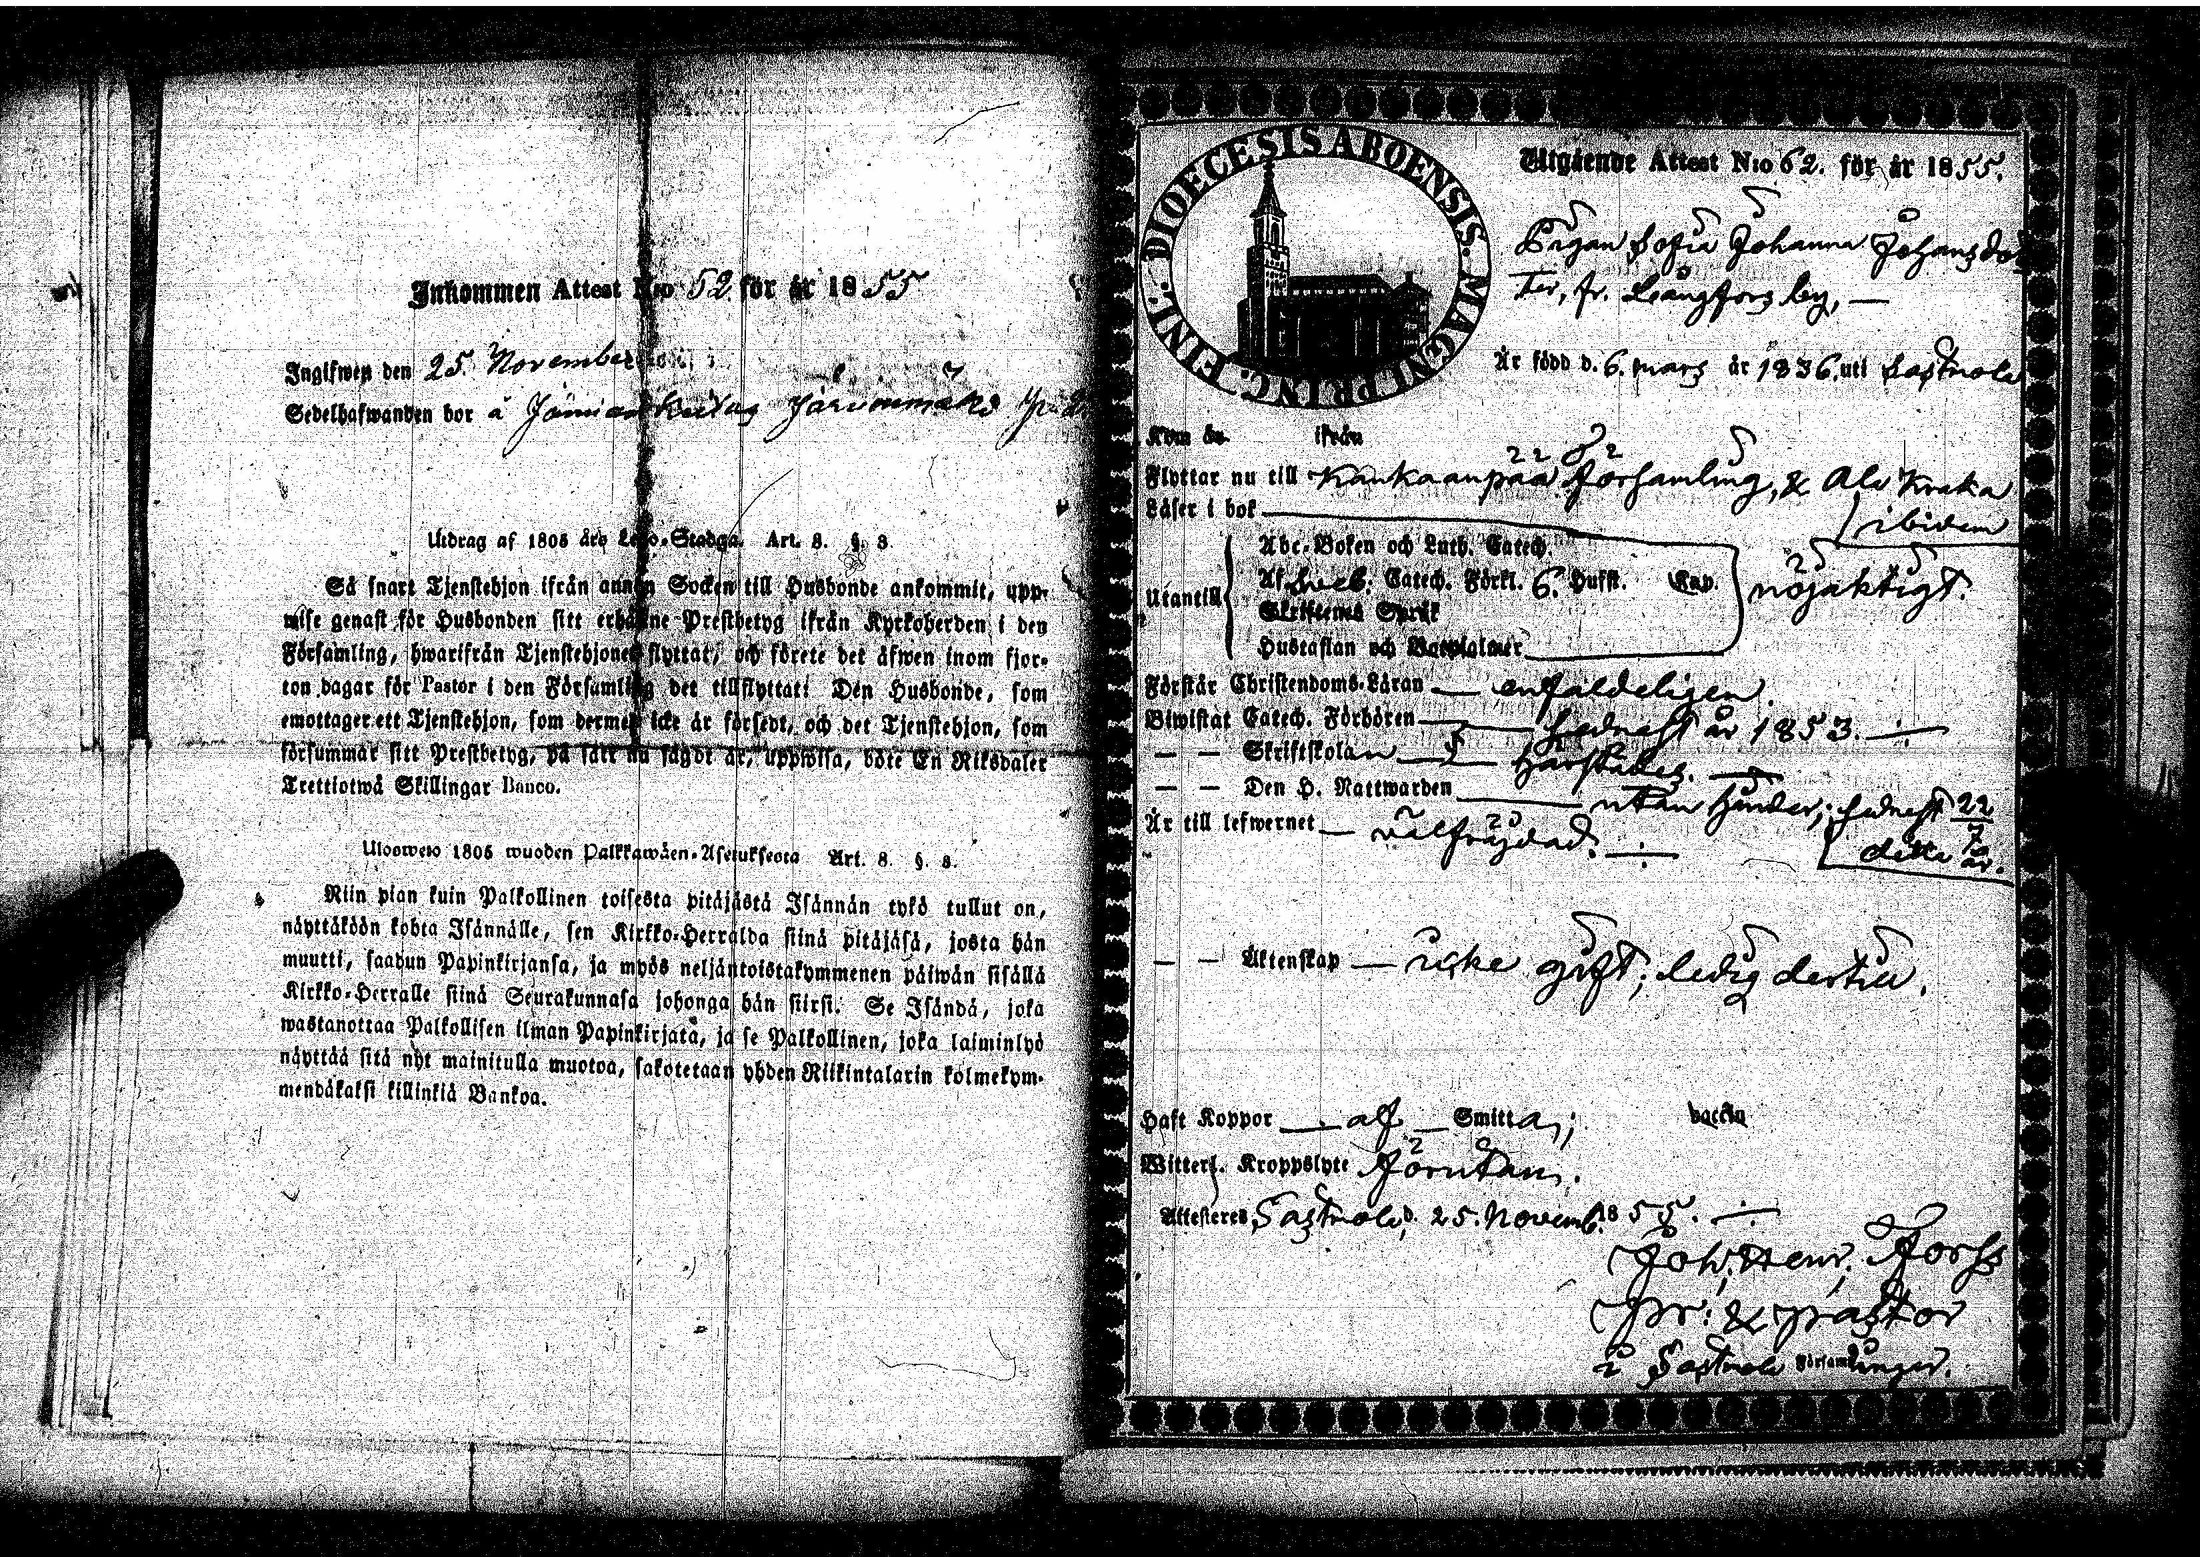 Inkommen Attest N:o 52 för år 1855
Ingifwen den 25. November
Sedelhafwanden bor å
Utdrag af 1805 års Lego-Stadga. Art. 8. §. 8.
Så snart Tjenstehjon ifrån annan Socken till Husbonde ankommit, upp-
wise genast för Husbonden sitt erhållne Prestbetyg ifrån Kyrkoherden i den
Församling, hwarifrån Tjenstehjonet flyttat, och förete det äfwen inom fjor-
ton dagar för Pastor i den Församling det tillflyttat: Den Husbonde, som
emottager ett Tjenstehjon, som dermed icke är försedt, och det Tjenstehjon, som
försummar sitt Prestbetyg, på sätt nu sagdt är, uppwisa, böte En Riksdaler
Trettiotwå Skillingar Banco.
Ulosweto 1805 wuoden Palkkawäen-Asetuksesta Art. 8. §. 8.
Niin pian kuin Palkollinen toisesta pitäjästä Isännän tykö tullut on,
näyttäköön kohta Isännälle, sen Kirkko-Herralda siinä pitäjäsä, josta hän
muutti, saadun Papinkirjansa, ja myös neljäntoistakymmenen päiwän sisällä
Kirkko-Herralle siinä Seurakunnasa johonga hän siirsi. Se Isändä, joka
wastanottaa Palkollisen ilman Papinkirjata, ja se Palkollinen, joka laiminlyö
näyttää sitä nyt mainitulla muotoa, sakotetaan yhden Riikintalarin kolmekym-
mendäkaksi killinkiä Bankoa.
DIOECESIS ABOENSIS. MAGNI PRINC. FINL.
Utgående Attest N:o 62. för år 1855.
Pigan Sofia Johanna Johansdot
ter, fr. Långfors by, —
Är född d. 6. mars år 1836. uti Sastmola
Kom år ifrån
Flyttar nu till Kankaanpää församling, & Ala Kraka
ibidem
Läser i bok
Utantill
Abc-Boken och Luth. Catech.
Af Sveb. Catech. Förkl. 6. Hufst. Kap. nöjaktigt.
Skriftenes Språk
Hustaflan och Botpsalmer
Förstår Christendoms-Läran — enfaldeligen
Biwistat Catech. Förhören — sednast år 1853.
— — Skriftskolan — härstädes.
— — Den H. Nattwarden — utan hinder; sednast 22/7
detta år.
Är till lefwernet — välfräjdad.
— — Äktenskap — icke gift; ledig dertill.
Haft Koppor — af — Smitta; vaccin
Witterl. Kroppslyte förutan.
Attesteres, Sastmola, d. 25. Novemb. 1855.
Joh. Henr. Forss
Pr: & pastor
i Sastmola Församlingar.